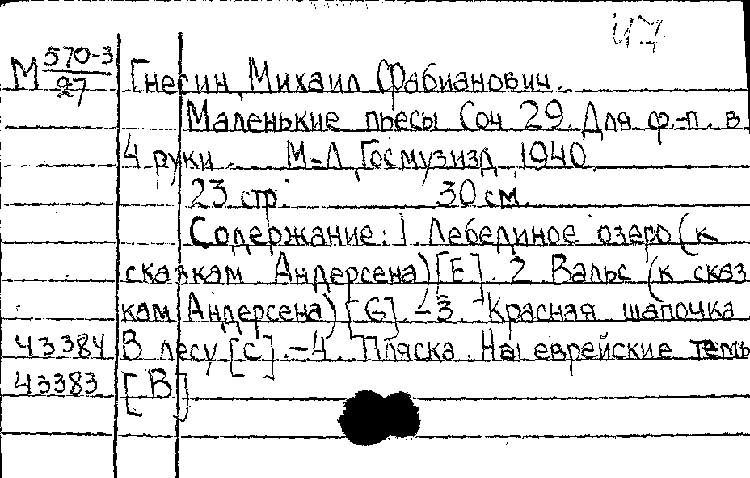 47
М 570-3/27 Гнесин, Михаил Фабианович.
Маленькие пьесы Соч 29. Для ф.-п. в
4 руки. М-Л, Госмузизд, 1940
23 стр. 30 см.
Содержание: 1. Лебединое озеро (к
сказкам Андерсена) [E]. 2. Вальс (к сказ
кам Андерсена) [G]. -3. Красная шапочка
43384 В лесу [c]. -4. Пляска. На еврейские темы
43383 [B]